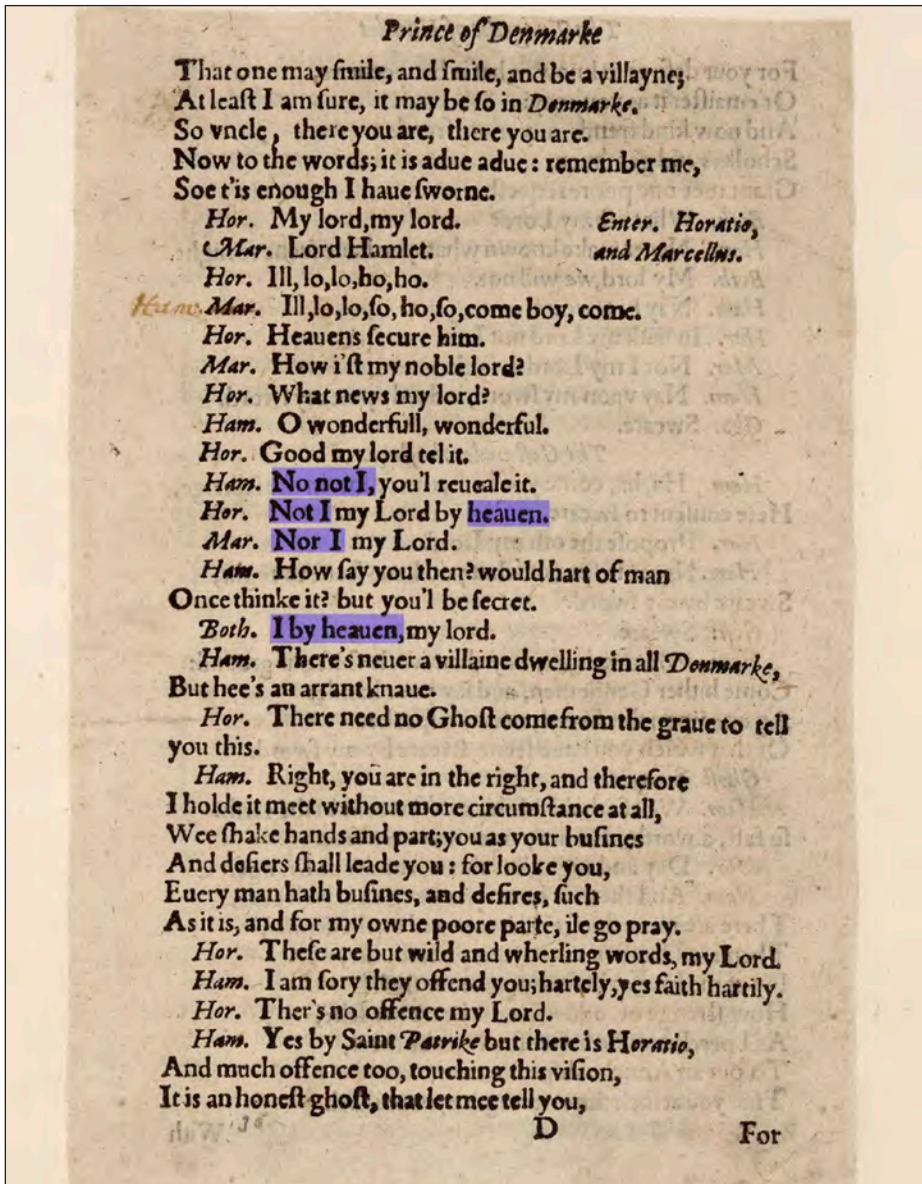 Prince of Denmarke
That one may ſmile, and ſmile, and be a villayne;
At leaſt I am ſure, it may be ſo in Denmarke.
So vncle, there you are, there you are.
Now to the words; it is adue adue: remember me,
Soe t'is enough I haue ſworne.
Hor. My lord,my lord. Enter. Horatio,
Mar. Lord Hamlet. and Marcellus.
Hor. Ill, lo,lo,ho,ho.
Ham. Mar. Ill,lo,lo,ſo, ho,ſo,come boy, come.
Hor. Heauens ſecure him.
Mar. How i'ſt my noble lord?
Hor. What news my lord?
Ham. O wonderfull, wonderful.
Hor. Good my lord tel it.
Ham. No not I, you'l reueale it.
Hor. Not I my Lord by heauen.
Mar. Nor I my Lord.
Ham. How ſay you then? would hart of man
Once thinke it? but you'l be ſecret.
Both. I by heauen, my lord.
Ham. There's neuer a villaine dwelling in all Denmarke,
But hee's an arrant knaue.
Hor. There need no Ghoſt come from the graue to tell
you this.
Ham. Right, you are in the right, and therefore
I holde it meet without more circumſtance at all,
Wee ſhake hands and part; you as your buſines
And deſiers ſhall leade you: for looke you,
Euery man hath buſines, and deſires, ſuch
As it is, and for my owne poore parte, ile go pray.
Hor. Theſe are but wild and wherling words, my Lord.
Ham. I am ſory they offend you; hartely, yes faith hartily.
Hor. Ther's no offence my Lord.
Ham. Yes by Saint Patrike but there is Horatio,
And much offence too, touching this viſion,
It is an honeſt ghoſt, that let mee tell you,
D For